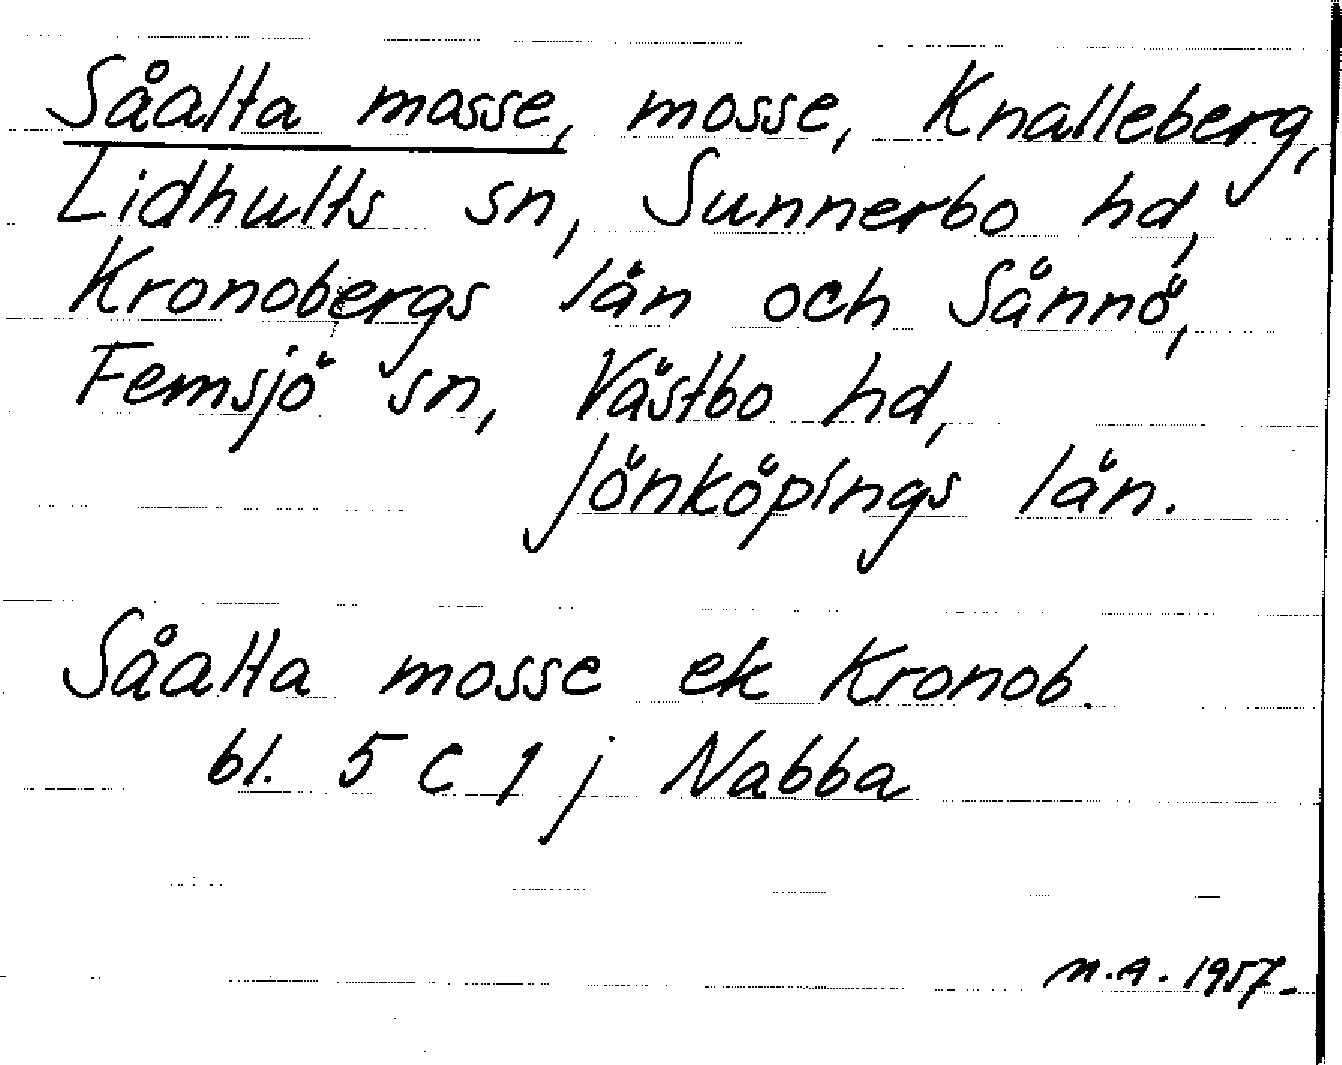 Såalta mosse, mosse, Knalleberg,
Lidhults sn, Sunnerbo hd,
Kronobergs län och Sännö,
Femsjö sn, Västbo hd,
Jönköpings län.
Såalta mosse ek Kronob.
bl. 5 C 1 j Nabba
n.a. 1957.